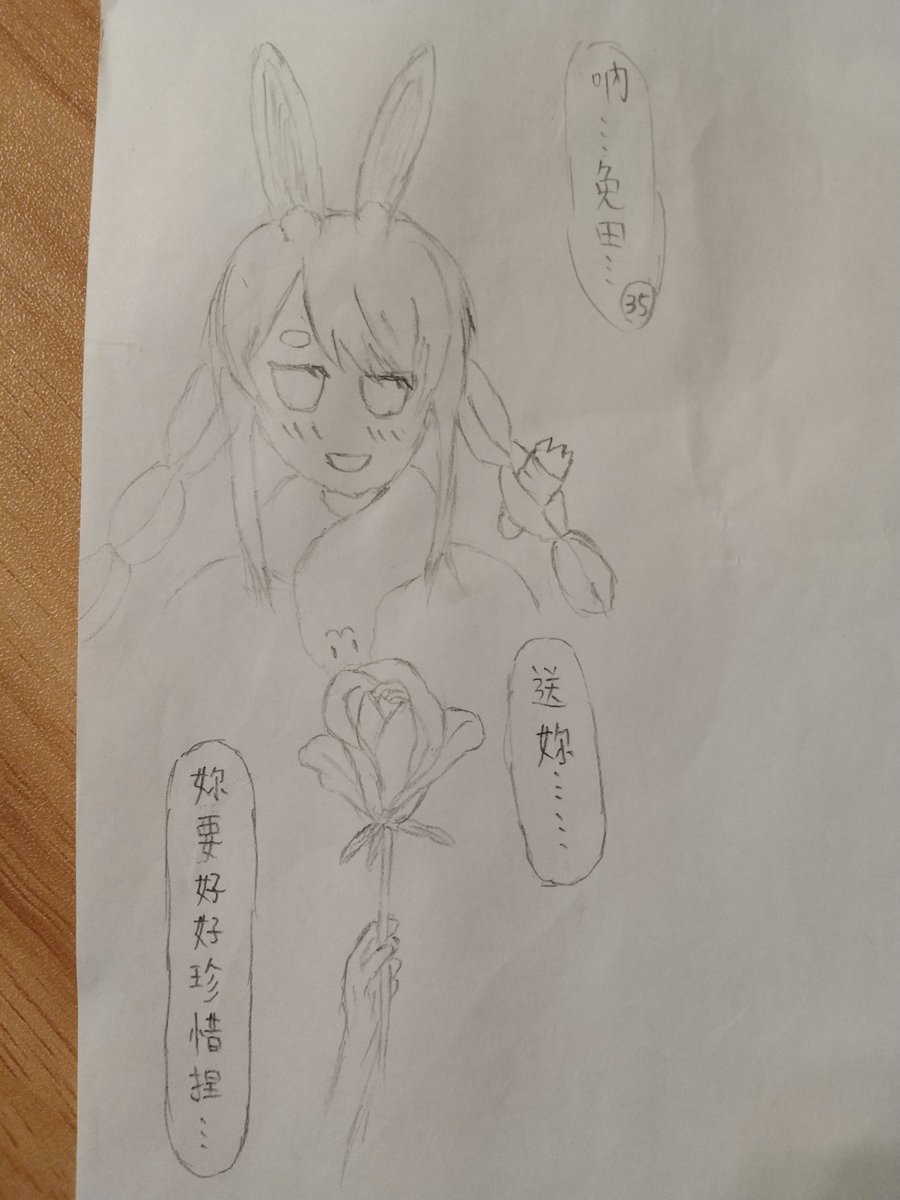 吶……免田…
㉟
送妳……
妳要好好珍惜捏…